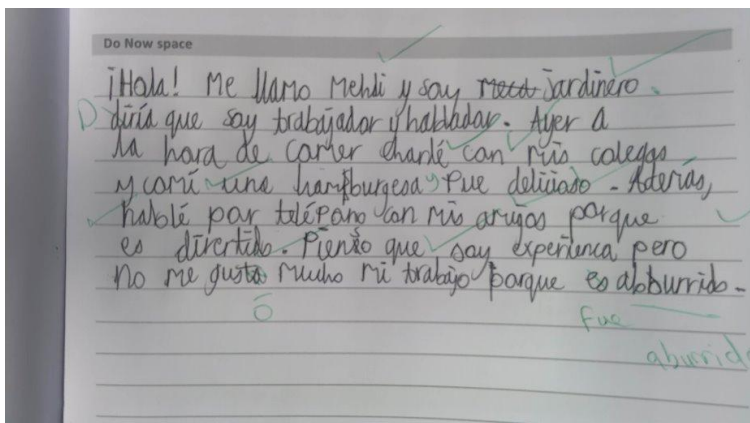 Do Now space
¡Hola! Me llamo Mehdi y soy jardinero.
D diría que soy trabajador y hablador. Ayer a
la hora de comer charlé con mis colegas
y comí una hamburgesa y fue delicioso. Además,
hablé por teléfono con mis amigos porque
es divertido. Pienso que soy experienca pero
no me gusta mucho mi trabajo porque es abburrido.
ó fue
aburrido